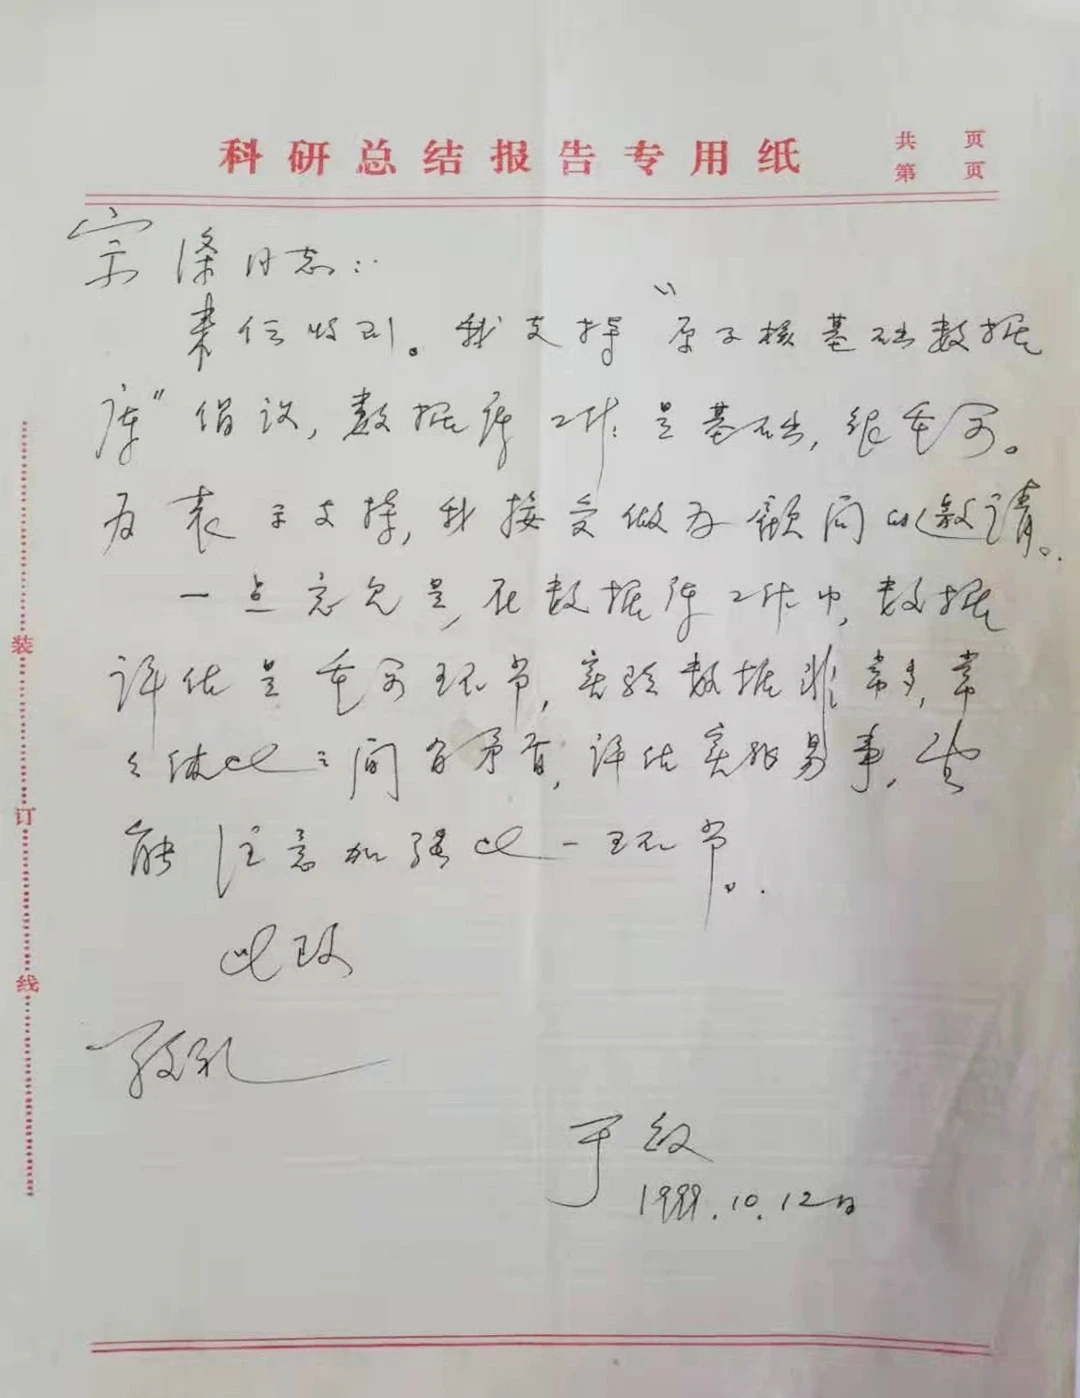 科研总结报告专用纸
共 页
第 页
宗涤同志:
来信收到。我支持“原子核基础数据
库”倡议,数据库工作是基础,很重要。
为表示支持,我接受做为顾问的邀请。
一点意见是,在数据库工作中,数据
评估是重要环节,实验数据非常多,常
常彼此之间有矛盾,评估实非易事,
能注意加强此一环节。
此致
敬礼
于敏
1999.10.12日
装
订
线